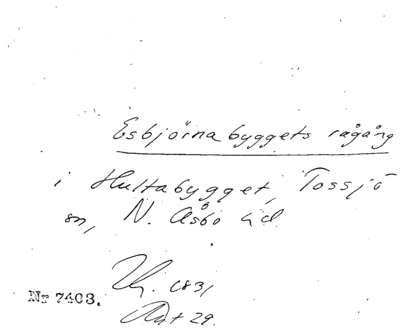 Esbjörnabyggets rågång
i Hultabygget, Tossjö
sn, N. Åsbo hd.
1831
Akt 29.
Nr 7403.